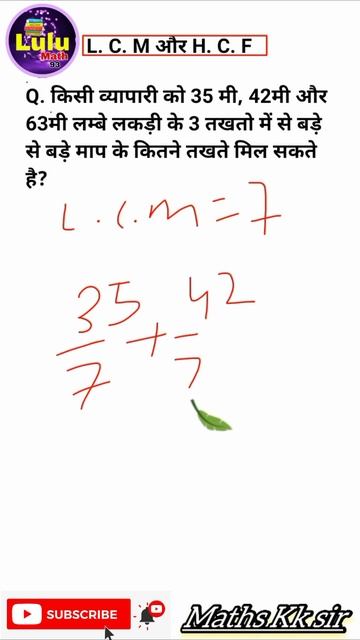 Lulu
Math
93
L. C. M और H. C. F
Q. किसी व्यापारी को 35 मी, 42मी और
63मी लम्बे लकड़ी के 3 तखतो में से बड़े
से बड़े माप के कितने तखते मिल सकते
है?
L.C.M=7
35/7 + 42/7
SUBSCRIBE
Maths Kk sir